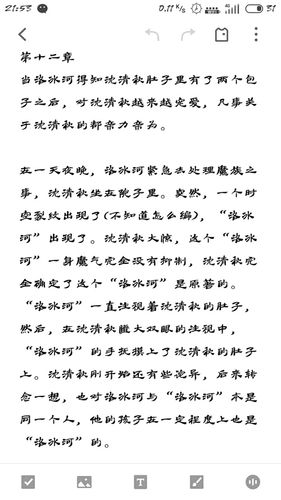 21:53
0.11 K/s
4G
31
第十二章
当洛冰河得知沈清秋肚子里有了两个包
子之后，对沈清秋越来越宠爱，凡事关
于沈清秋的都亲力亲为。
在一天夜晚，洛冰河紧急去处理魔族之
事，沈清秋坐在院子里。突然，一个时
空裂纹出现了(不知道怎么编)，“洛冰
河”出现了。沈清秋大惊，这个“洛冰
河”一身魔气完全没有抑制，沈清秋完
全确定了这个“洛冰河”是原著的。
“洛冰河”一直注视着沈清秋的肚子，
然后，在沈清秋瞪大双眼的注视中，
“洛冰河”的手抚摸上了沈清秋的肚子
上。沈清秋刚开始还有些诧异，后来转
念一想，也对洛冰河与“洛冰河”本是
同一个人，他的孩子在一定程度上也是
“洛冰河”的。
T